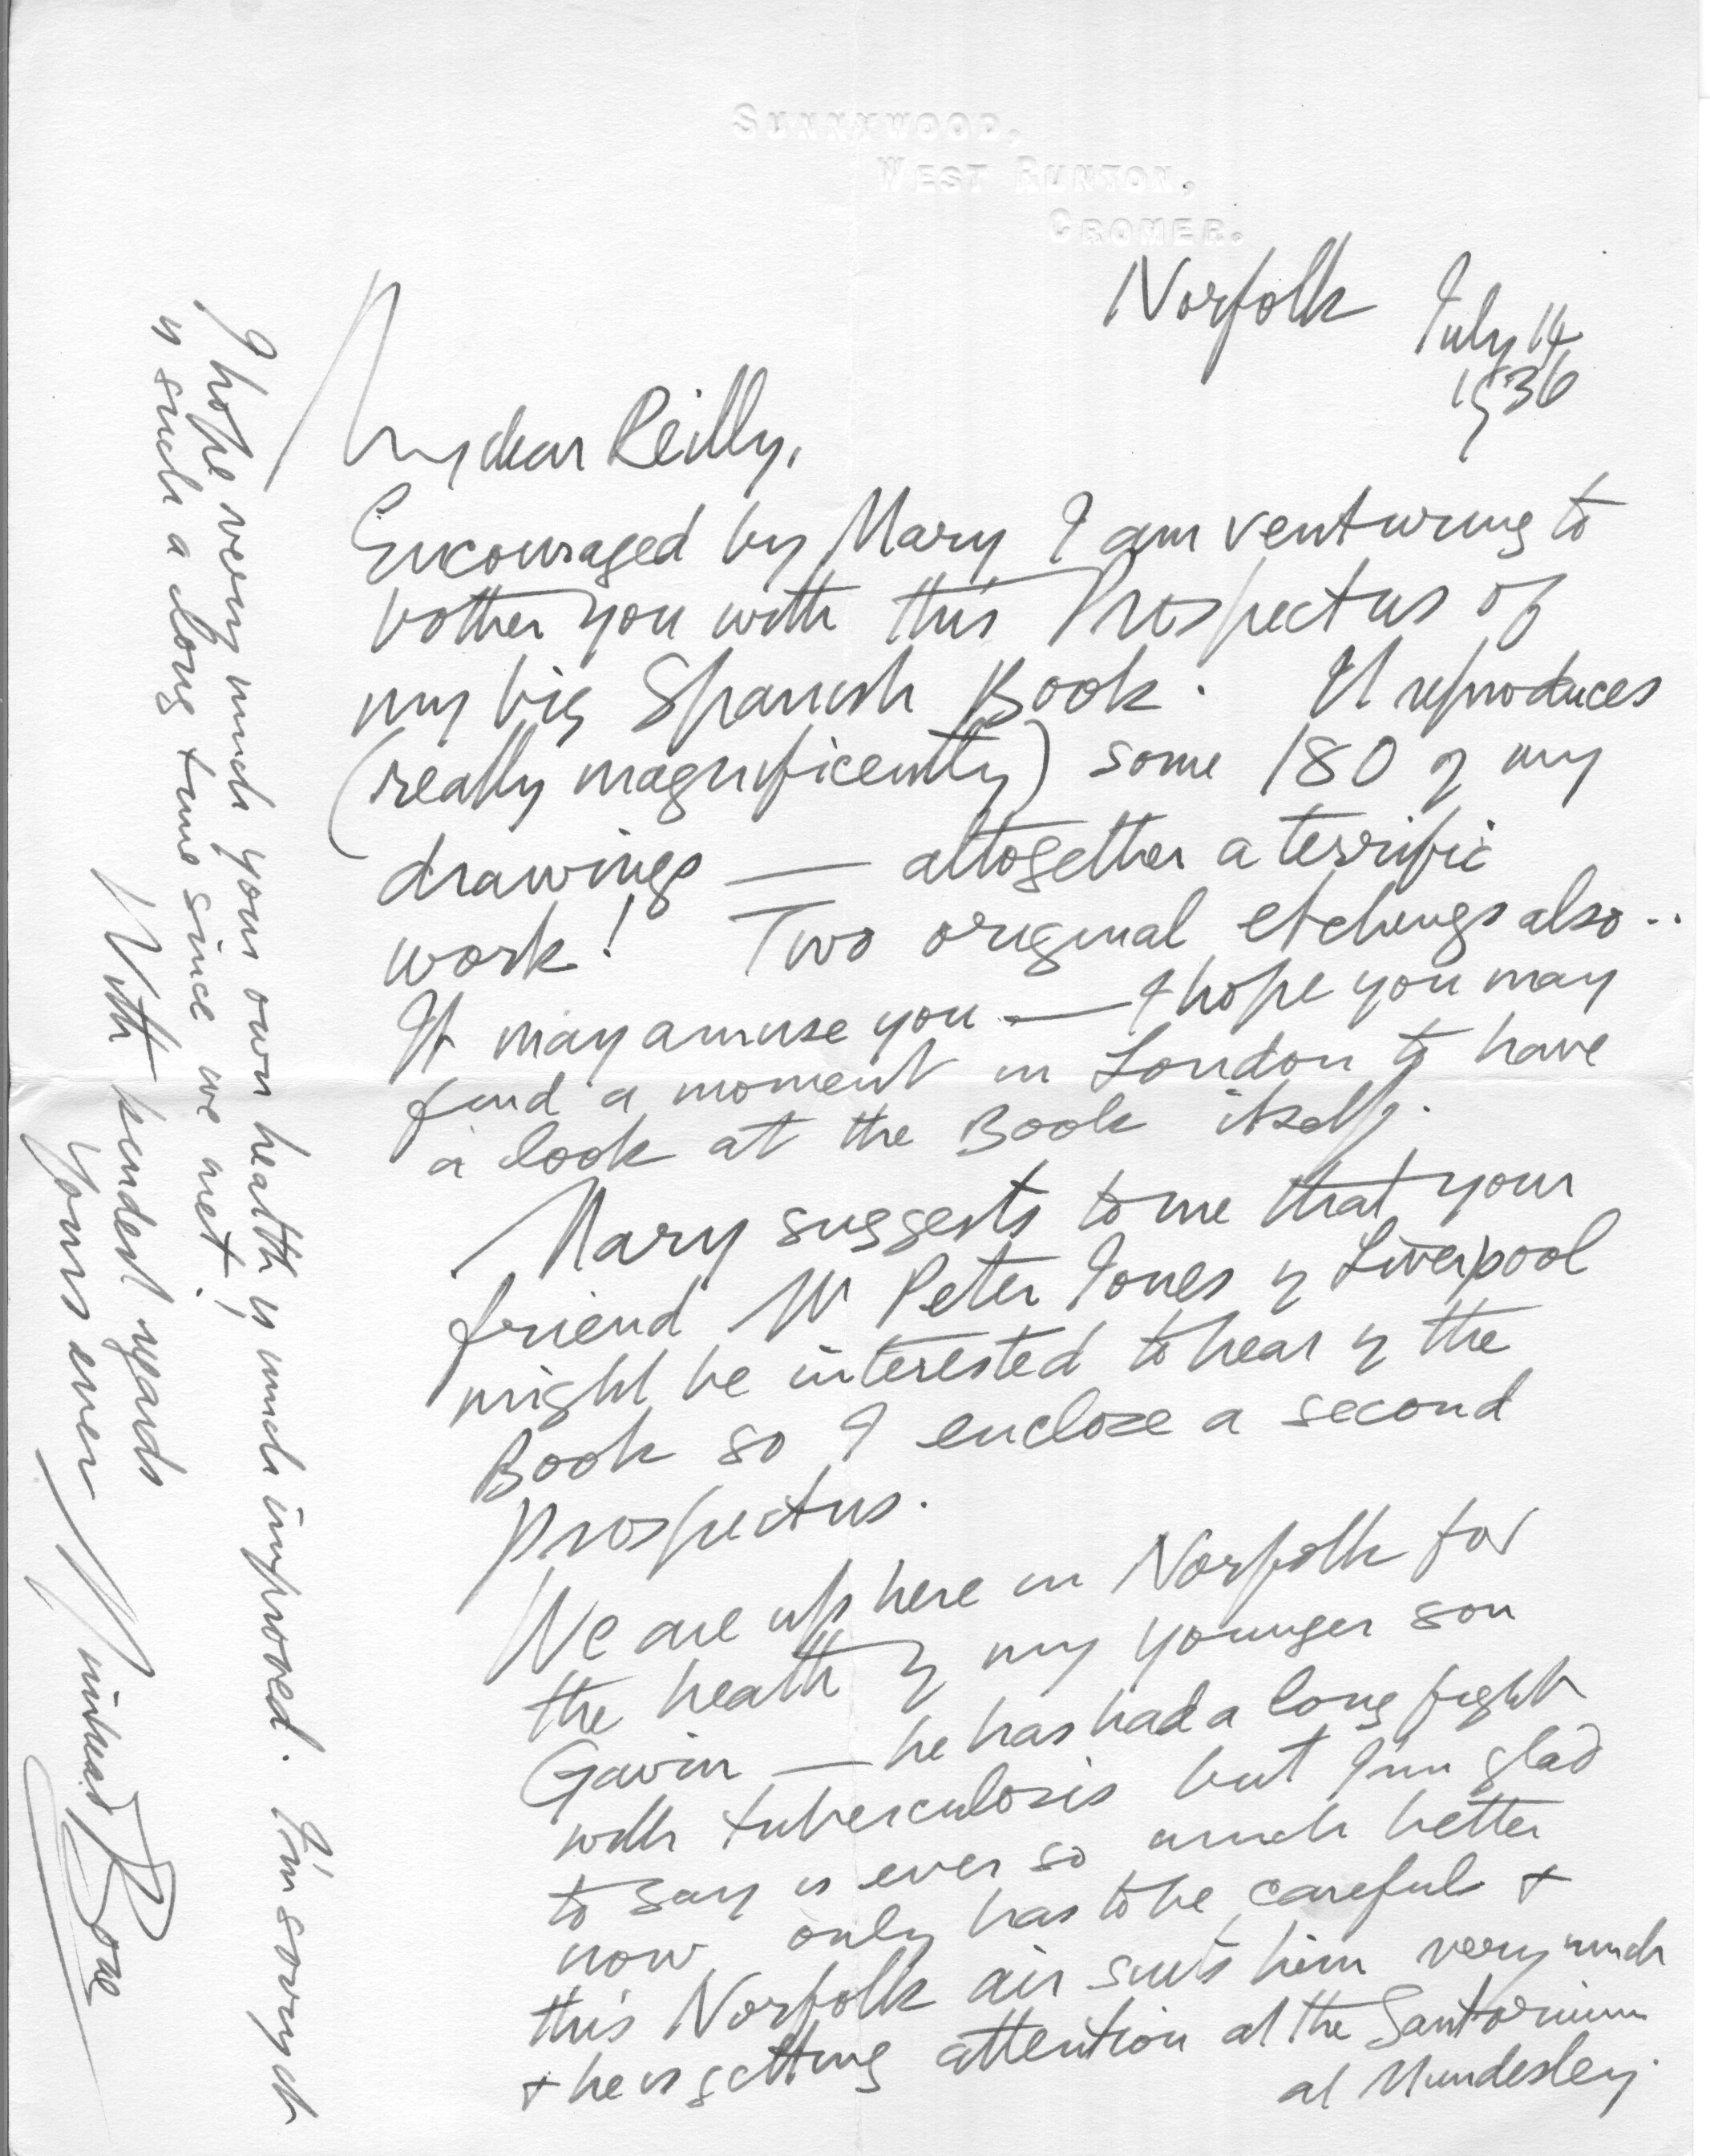 SUNNYWOOD,
WEST RUNTON,
CROMER.
Norfolk July 14
1936
My dear Reilly,
Encouraged by Mary I am venturing to
bother you with this Prospectus of
my big Spanish Book. It reproduces
(really magnificently) some 180 of my
drawings — altogether a terrific
work! Two original etchings also..
It may amuse you — & hope you may
find a moment in London to have
a look at the Book itself.
Mary suggests to me that your
friend Mr Peter Jones of Liverpool
might be interested to hear of the
Book so I enclose a second
Prospectus.
We are up here in Norfolk for
the health of my younger son
Gavin — he has had a long fight
with tuberculosis but I'm glad
to say is ever so much better
now, only has to be careful &
this Norfolk air suits him very much
& he is getting attention at the Santorium
at Mundesley.
I hope very much your own health is much improved. I'm sorry it
is such a long time since we met!
With kindest regards
Yours ever Muirhead Bone